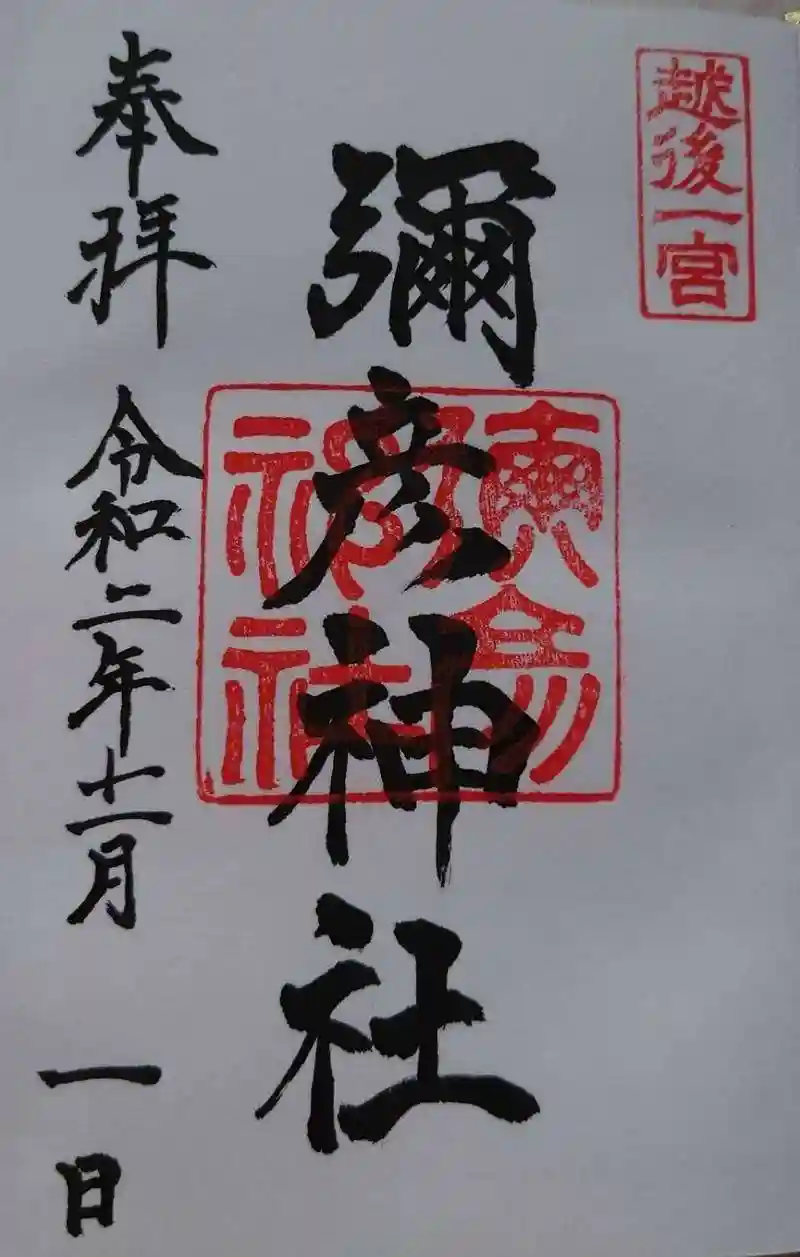 越後一宮
彌彦神社
彌彦神社
奉拝 令和二年十一月 一日